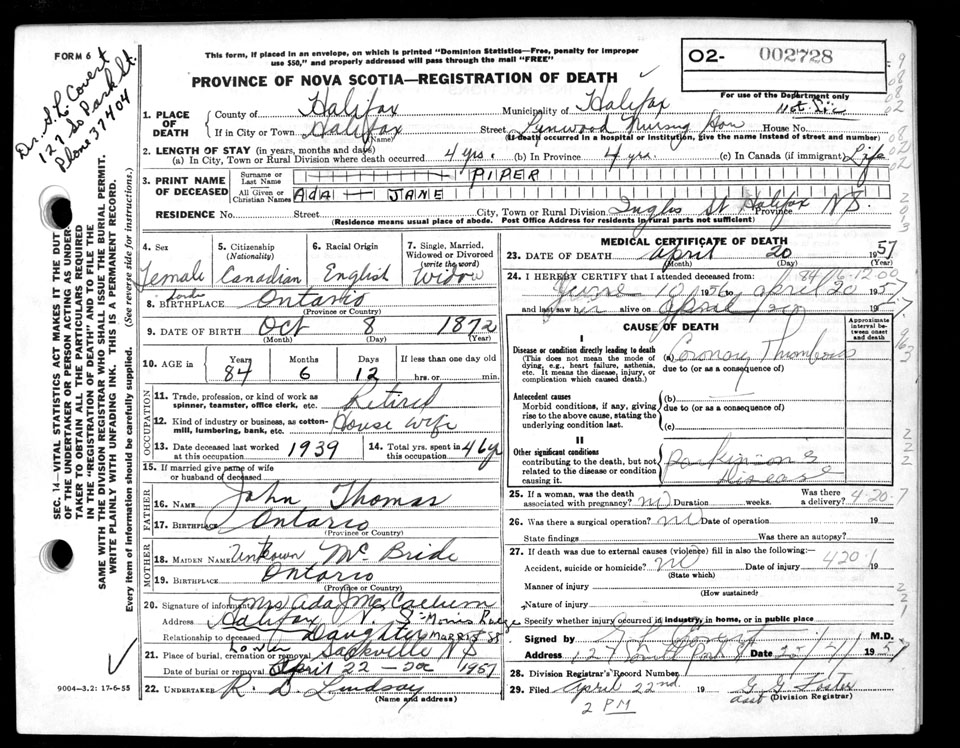 FORM 6
Dr. S. L. Covert
127 So Park St.
Phone 37404
This form, if placed in an envelope, on which is printed "Dominion Statistics—Free, penalty for improper
use $50," and properly addressed will pass through the mail "FREE"
PROVINCE OF NOVA SCOTIA—REGISTRATION OF DEATH
O2- 002728
For use of the Department only
1. PLACE OF DEATH
County of Halifax Municipality of Halifax
If in City or Town Halifax Street Nursing House No.
(Name) (If death occurred in a hospital or institution, give the name instead of street and number)
2. LENGTH OF STAY (in years, months and days)
(a) In City, Town or Rural Division where death occurred 4 yrs. (b) In Province 4 yrs. (c) In Canada (if immigrant) Life
3. PRINT NAME OF DECEASED
Surname or Last Name PIPER
All Given or Christian Names ADA — JANE
RESIDENCE No. Street City, Town or Rural Division Inglis St Halifax Province N.S.
(Residence means usual place of abode. Post Office Address for residents in rural parts not sufficient)
4. Sex Female
5. Citizenship (Nationality) Canadian
6. Racial Origin English
7. Single, Married, Widowed or Divorced (write the word) Widow
8. BIRTHPLACE Ontario
(Province or Country)
9. DATE OF BIRTH Oct 8 1872
(Month) (Day) (Year)
10. AGE in Years 84 Months 6 Days 12 If less than one day old hrs. or min.
OCCUPATION
11. Trade, profession, or kind of work as spinner, teamster, office clerk, etc. Retired
12. Kind of industry or business, as cotton-mill, lumbering, bank, etc. House wife
13. Date deceased last worked at this occupation 1939
14. Total yrs. spent in this occupation 46 y
15. If married give name of wife or husband of deceased
FATHER
16. NAME John Thomas
17. BIRTHPLACE Ontario
(Province or Country)
MOTHER
18. MAIDEN NAME Unknown McBride
19. BIRTHPLACE Ontario
(Province or Country)
20. Signature of informant Mrs Ada J McCallum
Address Halifax N. S.
Relationship to deceased Daughter
21. Place of burial, cremation or removal Lower Sackville NS
Date of burial or removal April 22 1957
22. UNDERTAKER R. D. Lindsay
(Name and address)
MEDICAL CERTIFICATE OF DEATH
23. DATE OF DEATH April 20 1957
(Month) (Day) (Year)
24. I HEREBY CERTIFY that I attended deceased from:
June 10 1956 to April 20 1957
and last saw her alive on April 20
CAUSE OF DEATH
Approximate interval between onset and death
I
Disease or condition directly leading to death
(This does not mean the mode of dying, e.g., heart failure, asthenia, etc. It means the disease, injury, or complication which caused death.)
(a) Coronary Thrombosis
due to (or as a consequence of)
Antecedent causes
Morbid conditions, if any, giving rise to the above cause, stating the underlying condition last.
(b)
due to (or as a consequence of)
(c)
II
Other significant conditions
contributing to the death, but not related to the disease or condition causing it.
Parkinsons Disease
25. If a woman, was the death associated with pregnancy? no Duration weeks. Was there a delivery? 4-20-7
26. Was there a surgical operation? no Date of operation 19
State findings Was there an autopsy?
27. If death was due to external causes (violence) fill in also the following:—
Accident, suicide or homicide? no Date of injury 19
(State which) 420.1
Manner of injury
(How sustained)
Nature of injury
Specify whether injury occurred in industry, in home, or in public place
Signed by M.D.
Address 127 South Park St Date
28. Division Registrar's Record Number
29. Filed April 22nd 19 G. G. Foster
2 PM (Division Registrar)
SEC. 14—VITAL STATISTICS ACT MAKES IT THE DUTY
OF THE UNDERTAKER OR PERSON ACTING AS UNDER-
TAKER TO OBTAIN ALL THE PARTICULARS REQUIRED
IN THE "REGISTRATION OF DEATH" AND TO FILE THE
SAME WITH THE DIVISION REGISTRAR WHO SHALL ISSUE THE BURIAL PERMIT.
WRITE PLAINLY WITH UNFADING INK. THIS IS A PERMANENT RECORD.
Every item of information should be carefully supplied. (See reverse side for instructions.)
9004—3.2: 17-6-55